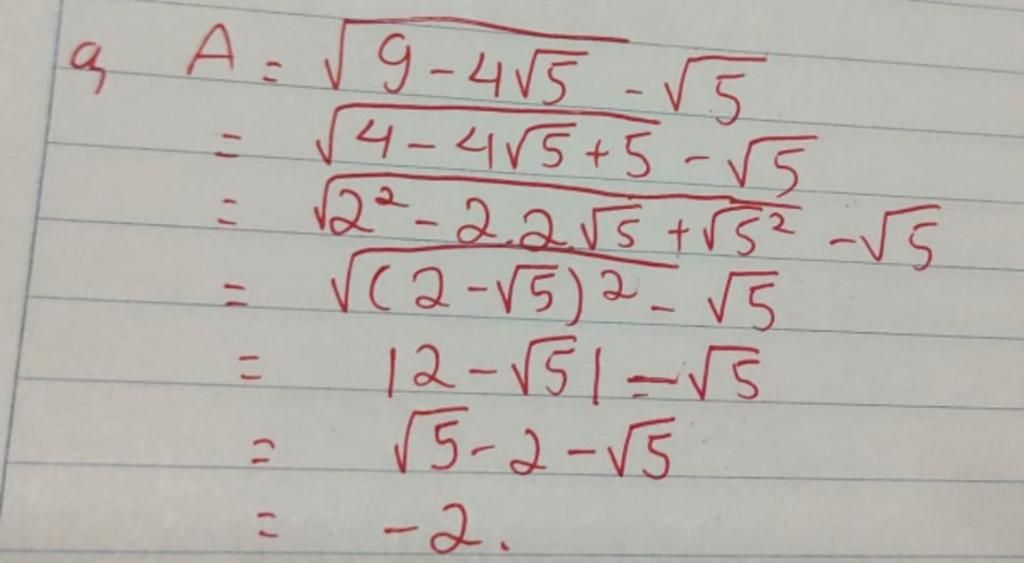 a, A = √(9 - 4√5) - √5
= √(4 - 4√5 + 5) - √5
= √(2² - 2.2.√5 + √5²) - √5
= √((2 - √5)²) - √5
= |2 - √5| - √5
= √5 - 2 - √5
= -2.